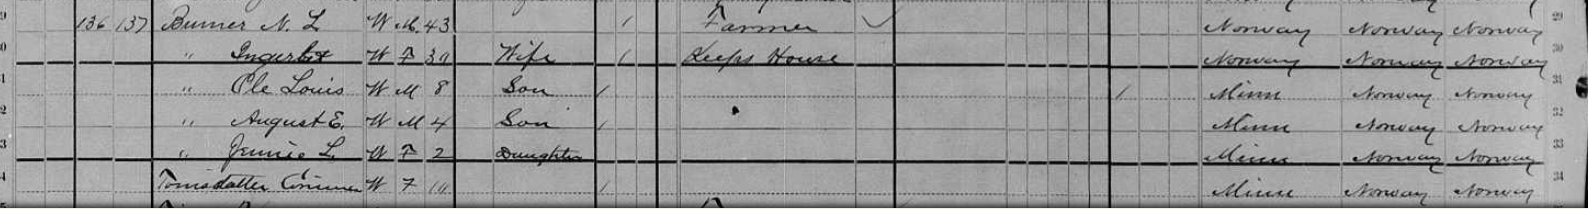 136 137 Burner N. L W M. 43 1 Farmer Norway Norway Norway 29
" W F 39 Wife 1 Keeps House Norway Norway Norway 30
" Ole Louis W M 8 Son 1 1 Minn Norway Norway 31
" August E. W M 4 Son 1 Minn Norway Norway 32
" Jennie L. W F 2 Daughter Minn Norway Norway 33
W F 1 Minn Norway Norway 34